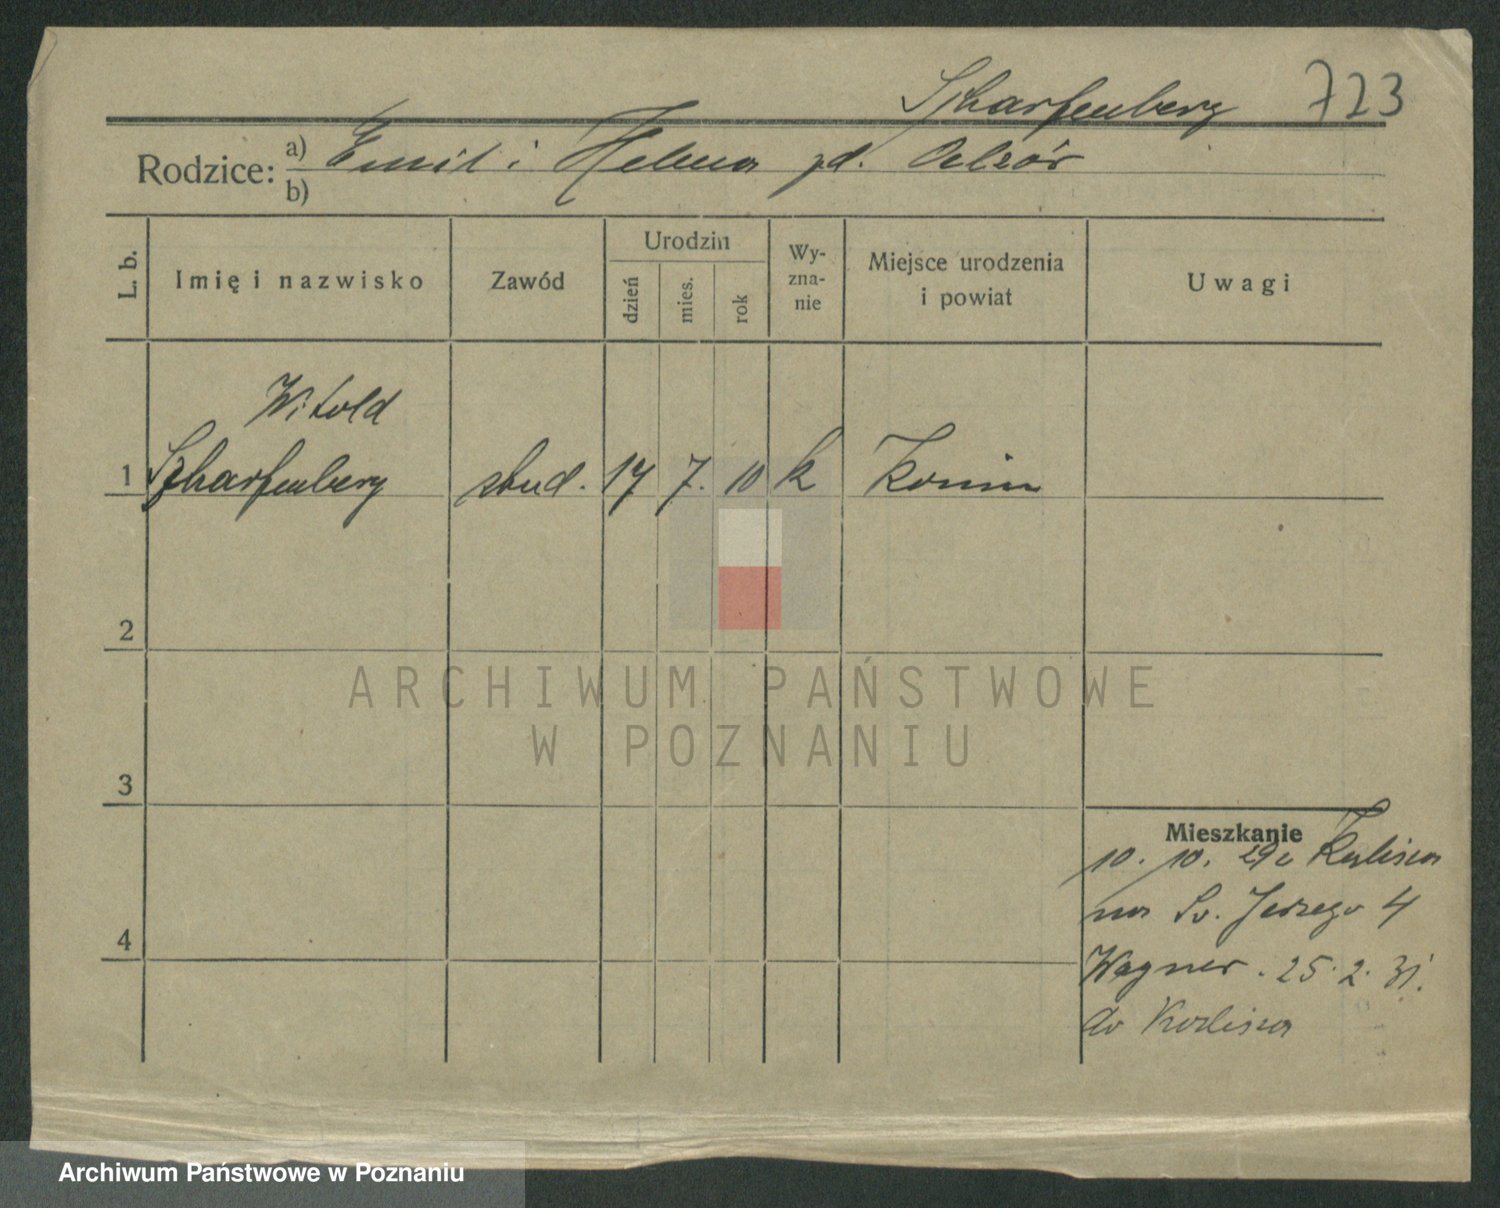 Scharfenberg 723
Rodzice: a) Emil i Helena zd.
b)
L. b.
Imię i nazwisko
Zawód
Urodzin
dzień
mies.
rok
Wy-
zna-
nie
Miejsce urodzenia
i powiat
Uwagi
Witold
1 Scharfenberg stud. 17 7. 10 k Konin
2
ARCHIWUM PAŃSTWOWE
W POZNANIU
3
Mieszkanie
10. 10. 29 z Kalisza
na Św. Jerzego 4
4
Wagner. 25.2.31.
do Kalisza
Archiwum Państwowe w Poznaniu